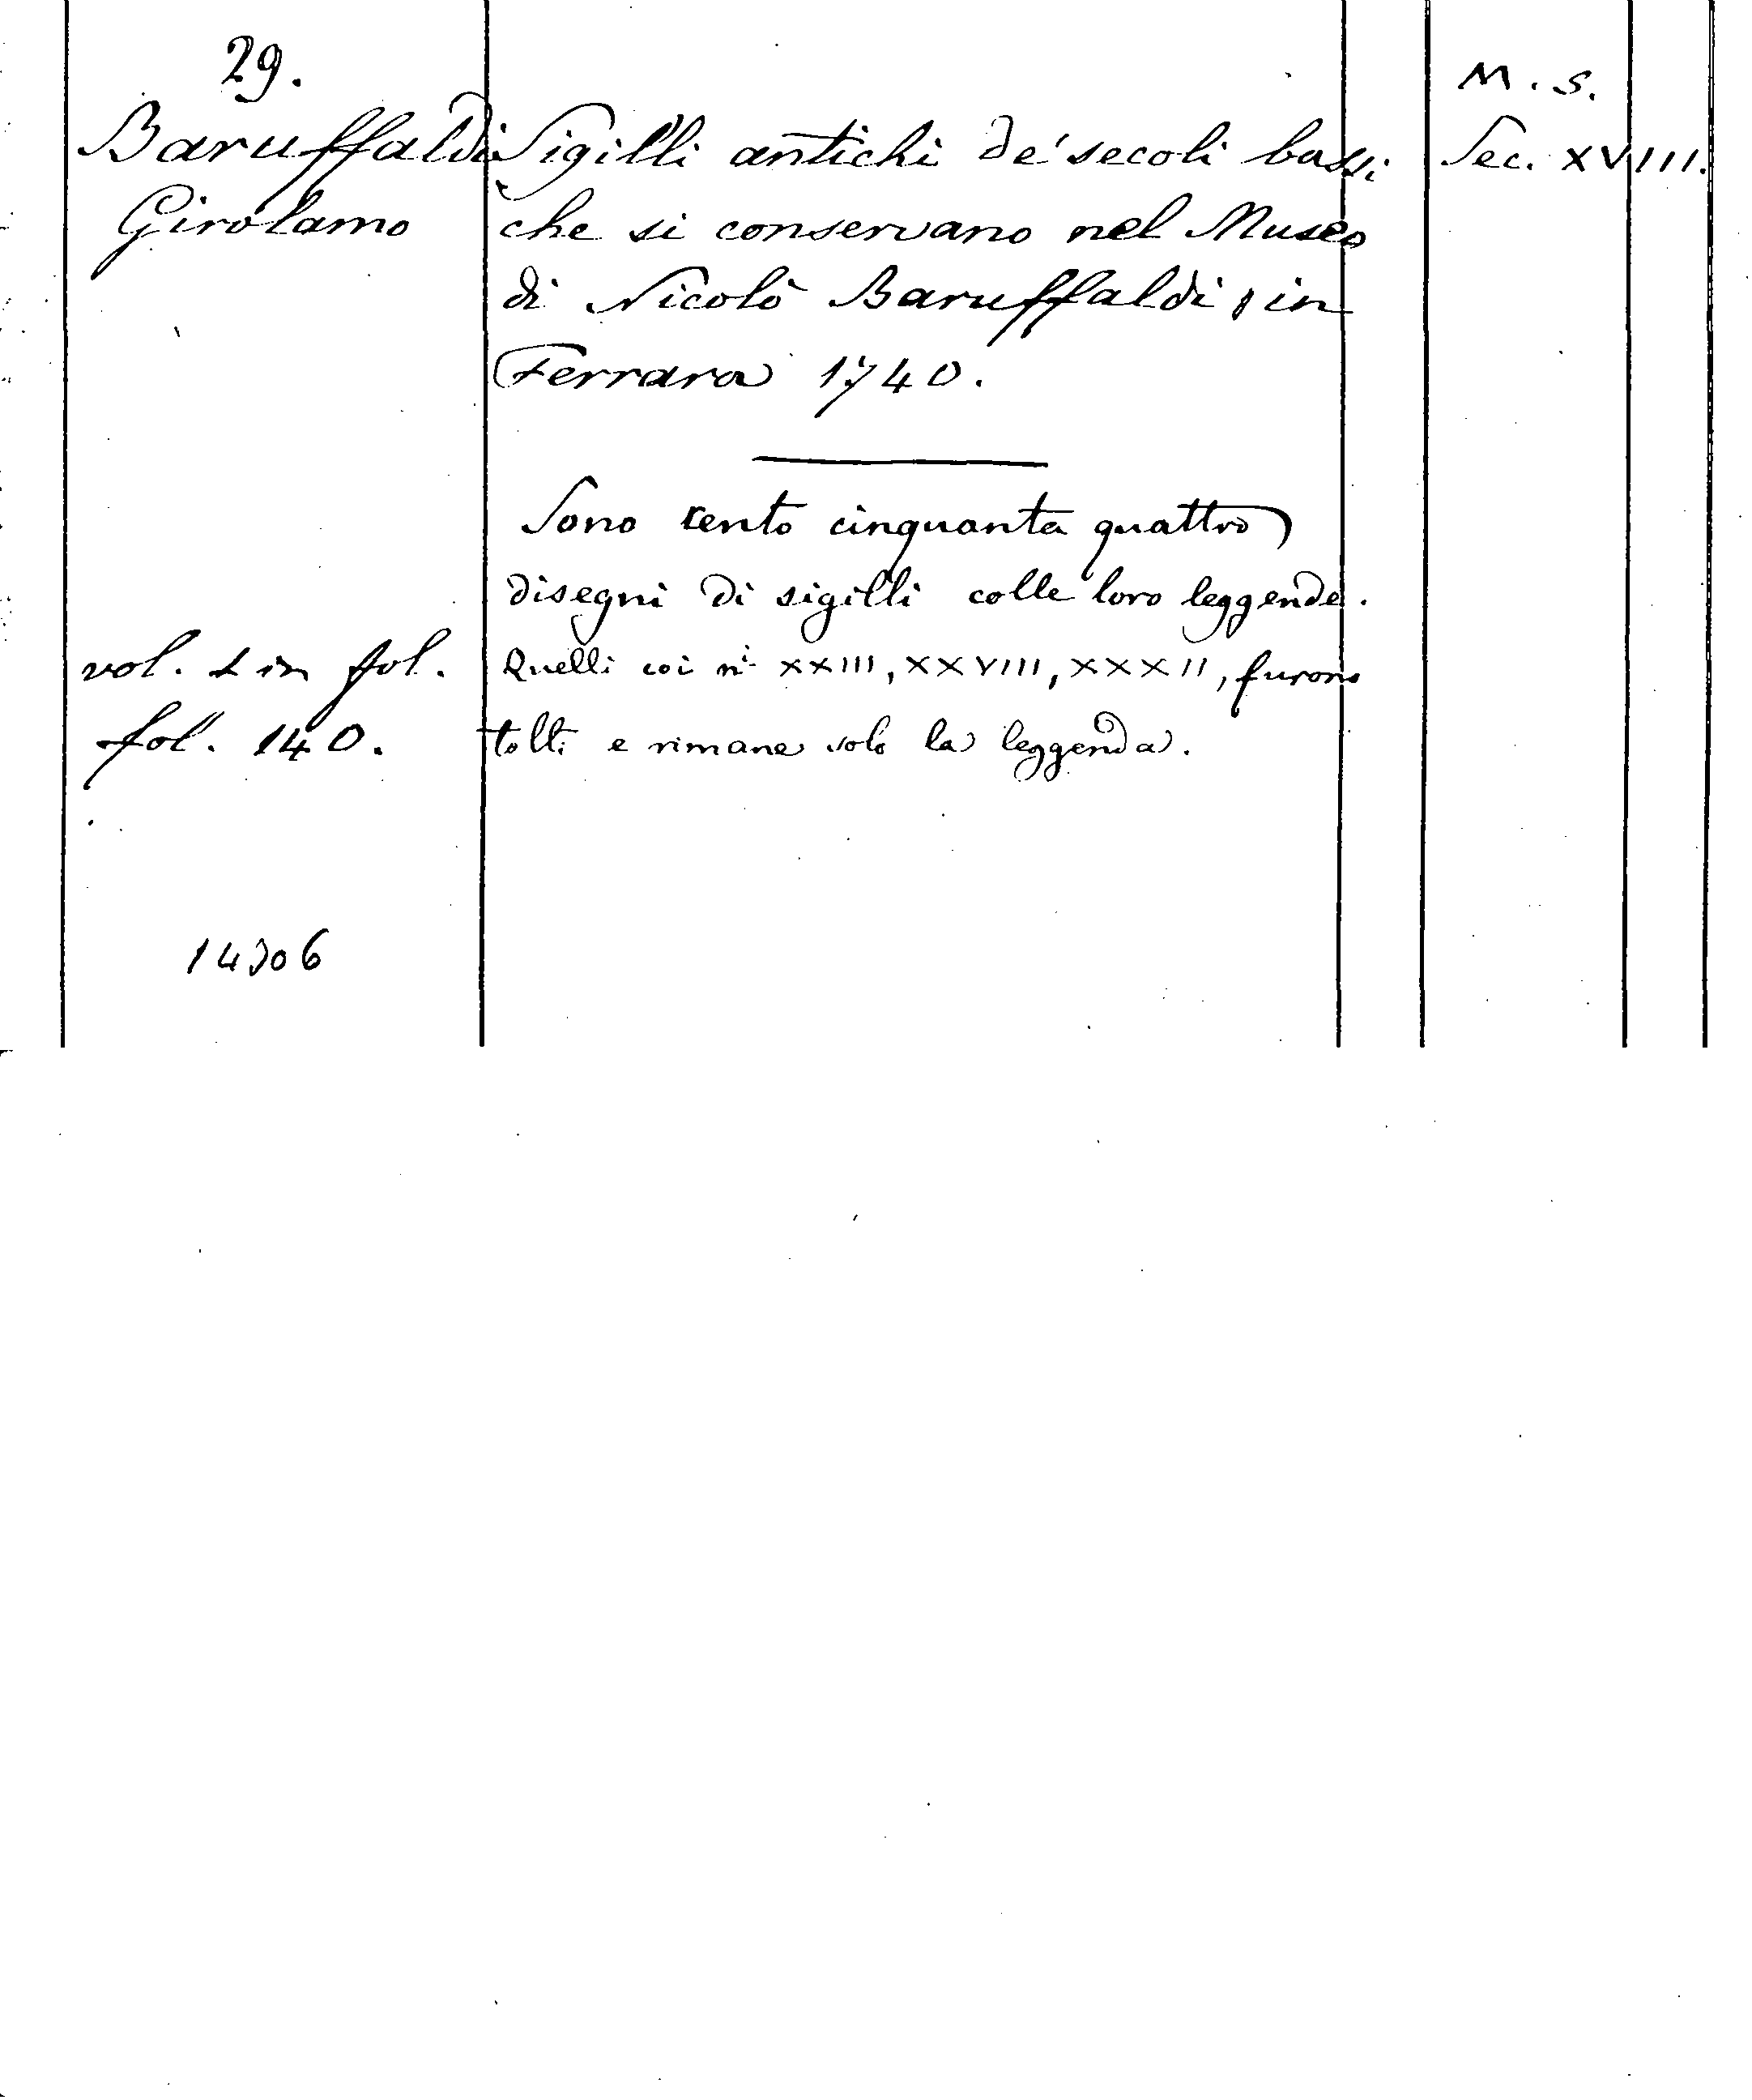 29.
Baruffaldi
Girolamo
Sigilli antichi de' secoli bassi
che si conservano nel Museo
di Nicolò Baruffaldi, in
Ferrara 1740.
M. S.
Sec. XVIII.
Sono cento cinquanta quattro
disegni di sigilli colle loro leggende.
Quelli coi ni XXIII, XXVIII, XXXII, furono
tolti e rimane solo la leggenda.
vol. 1 in fol.
fol. 140.